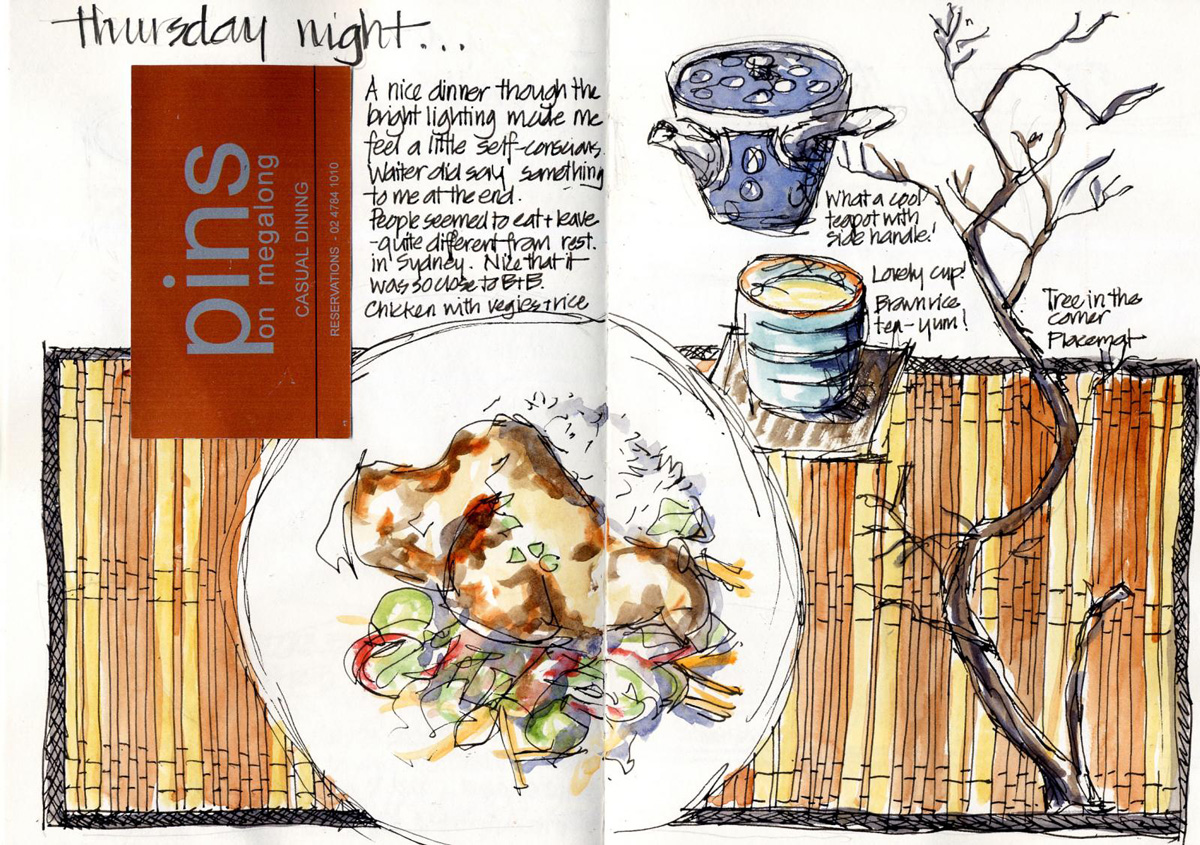 thursday night...
pins
on megalong
CASUAL DINING
RESERVATIONS - 02 4784 1010
A nice dinner though the
bright lighting made me
feel a little self-conscious.
Waiter did say something
to me at the end.
People seemed to eat + leave
- quite different from rest.
in Sydney. Nice that it
was so close to B+B.
Chicken with vegies + rice
What a cool
teapot with
side handle!
Lovely cup!
Brown rice
tea - yum!
Tree in the
corner
Placemat